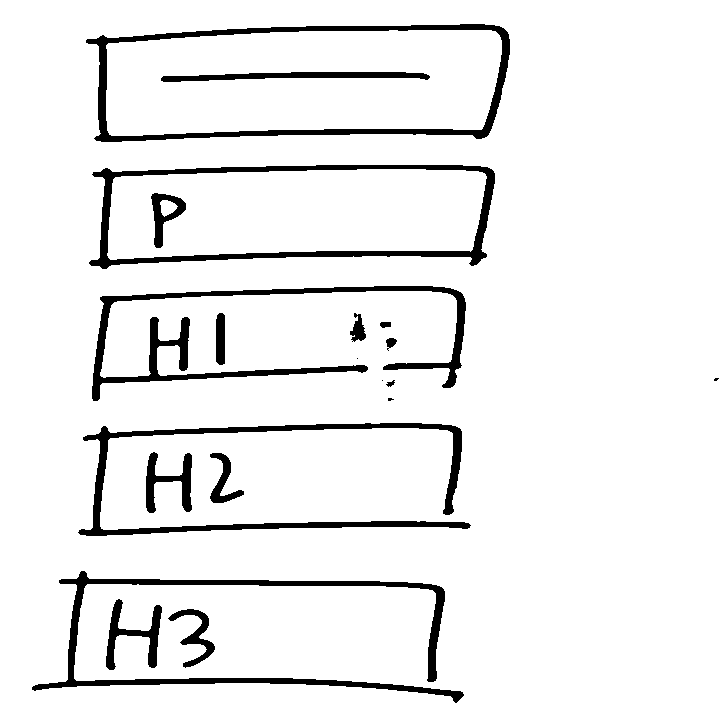 P
H1
H2
H3